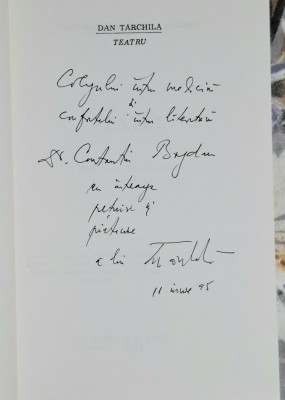 DAN TĂRCHILĂ
TEATRU
Colegului întru medicină
și
confratelui întru literatură
Dr. Constantin Bogdan
cu întreaga
prețuire și
prietenie
a lui Tărchilă
11 iunie 95